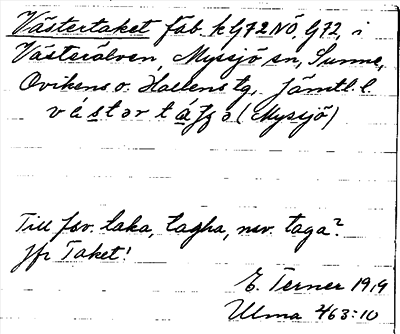 Västertaket fäb. k G72NÖ, G72, i
Västerälven, Myssjö sn, Sunne,
Ovikens o. Hallens tg, Jämtl. l.
(Myssjö)
Till fsv. taka, tagha, nsv. taga?
Jfr Taket!
E. Terner 1919
Ulma 763:10